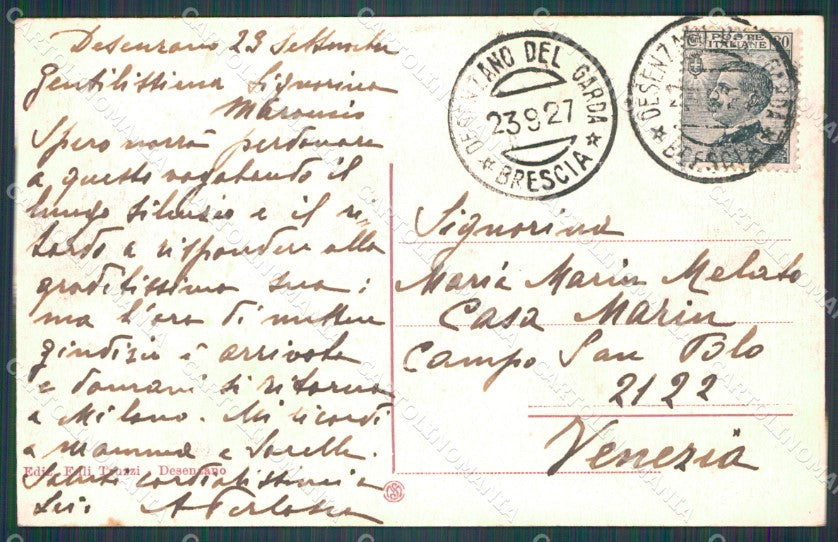 Desenzano 23 Settembre
Gentilissima Signorina
Spero vorrà perdonare
a questo vagabondo il
lungo silenzio e il ri-
tardo a rispondere alla
graditissima sua;
ma l'ora di mettere
giudizio è arrivata
e domani si ritorna
a Milano. Mi ricordi
a Mamma e Sorelle.
Saluti cordialissimi a
Lei.
Ediz. F.lli Truzzi Desenzano
DESENZANO DEL GARDA
23.9.27
★ BRESCIA ★
DESENZANO DEL GARDA
★ BRESCIA ★
POSTE
ITALIANE
30
Signorina
Maria Marin Melato
Casa Marin
Campo San Polo
2122
Venezia
CARTOLINOMANIA